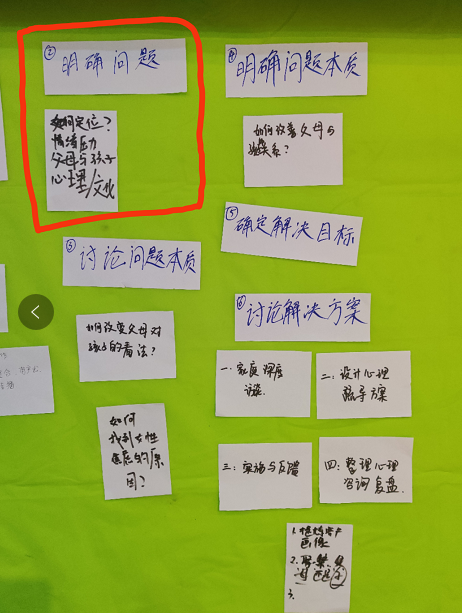 ② 明确问题
如何定位?
情绪压力
父母与孩子
心理/文化
③ 讨论问题本质
如何改变父母对
孩子的看法?
如何
找到女性
焦虑的原
因?
④ 明确问题本质
如何改善父母与
孩关系?
⑤ 确定解决目标
⑥ 讨论解决方案
一、家庭深度
访谈.
二:设计心理
疏导方案
三:实施与反馈
四:整理心理
咨询复盘.
1.
画像
2.
3.